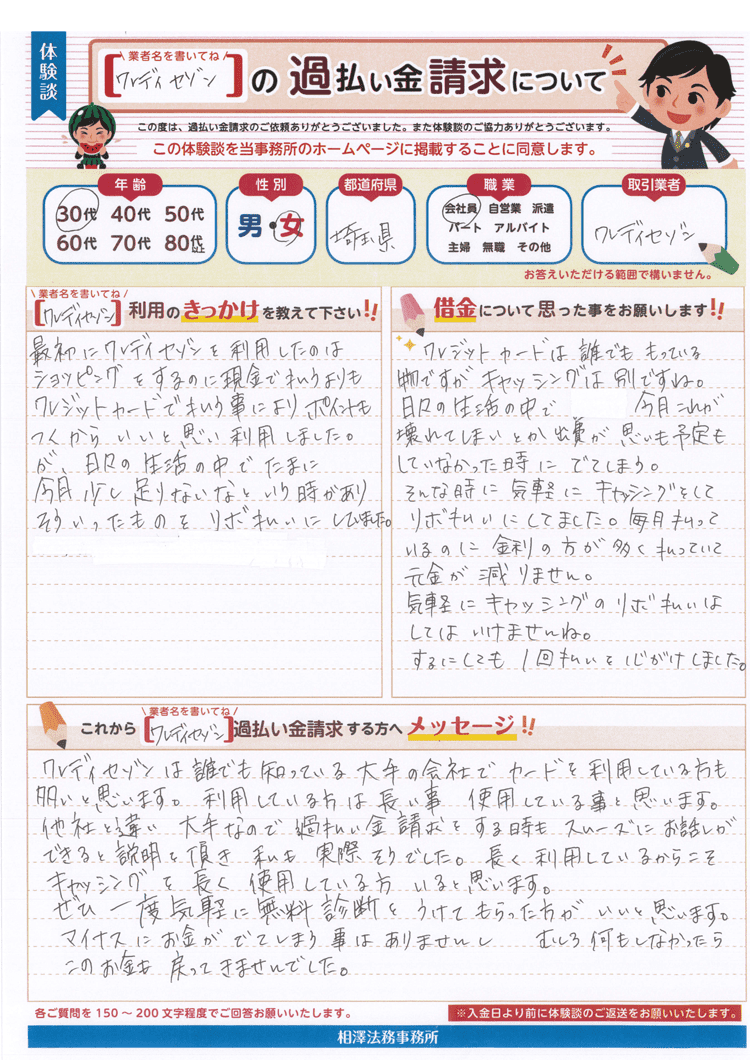 体験談
\ 業者名を書いてね /
[クレディセゾン]の 過払い金 請求について
この度は、過払い金請求のご依頼ありがとうございました。また体験談のご協力ありがとうございます。
この体験談を当事務所のホームページに掲載することに同意します。
年齢
30代 40代 50代
60代 70代 80代以上
性別
男・女
都道府県
埼玉県
職業
会社員 自営業 派遣
パート アルバイト
主婦 無職 その他
取引業者
クレディセゾン
お答えいただける範囲で構いません。
\ 業者名を書いてね /
[クレディセゾン]利用のきっかけを教えて下さい!!
最初にクレディセゾンを利用したのは
ショッピングをするのに現金で払うよりも
クレジットカードで払う事によりポイントも
つくからいいと思い利用しました。
が、日々の生活の中でたまに
今月少し足りないなという時があり
そういったものをリボ払いにしていました。
借金について思った事をお願いします!!
クレジットカードは誰でももっている
物ですがキャッシングは別ですね。
日々の生活の中で 今月これが
壊れてしまいとか出費が思いも予定も
していなかった時にでてしまう。
そんな時に気軽にキャッシングをして
リボ払いにしてました。毎月払って
いるのに金利の方が多く払っていて
元金が減りません。
気軽にキャッシングのリボ払いは
してはいけませんね。
するにしても1回払いを心がけしました。
\ 業者名を書いてね /
これから[クレディセゾン]過払い金請求する方へメッセージ!!
クレディセゾンは誰でも知っている大手の会社でカードを利用している方も
多いと思います。利用している方は長い事 使用している事と思います。
他社と違い 大手なので過払い金請求をする時もスムーズにお話しが
できると説明を頂き私も実際そうでした。長く利用しているからこそ
キャッシングを長く使用している方いると思います。
ぜひ一度気軽に無料診断をうけてもらった方がいいと思います。
マイナスにお金がでてしまう事はありませんし むしろ何もしなかったら
このお金も戻ってきませんでした。
各ご質問を150～200文字程度でご回答お願いいたします。
※入金日より前に体験談のご返送をお願いいたします。
相澤法務事務所